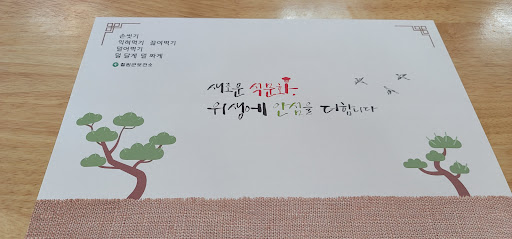 손씻기
익혀먹기 끓여먹기
덜어먹기
덜 달게 덜 짜게
철원군보건소
새로운 식문화,
위생에 안심을 더합니다